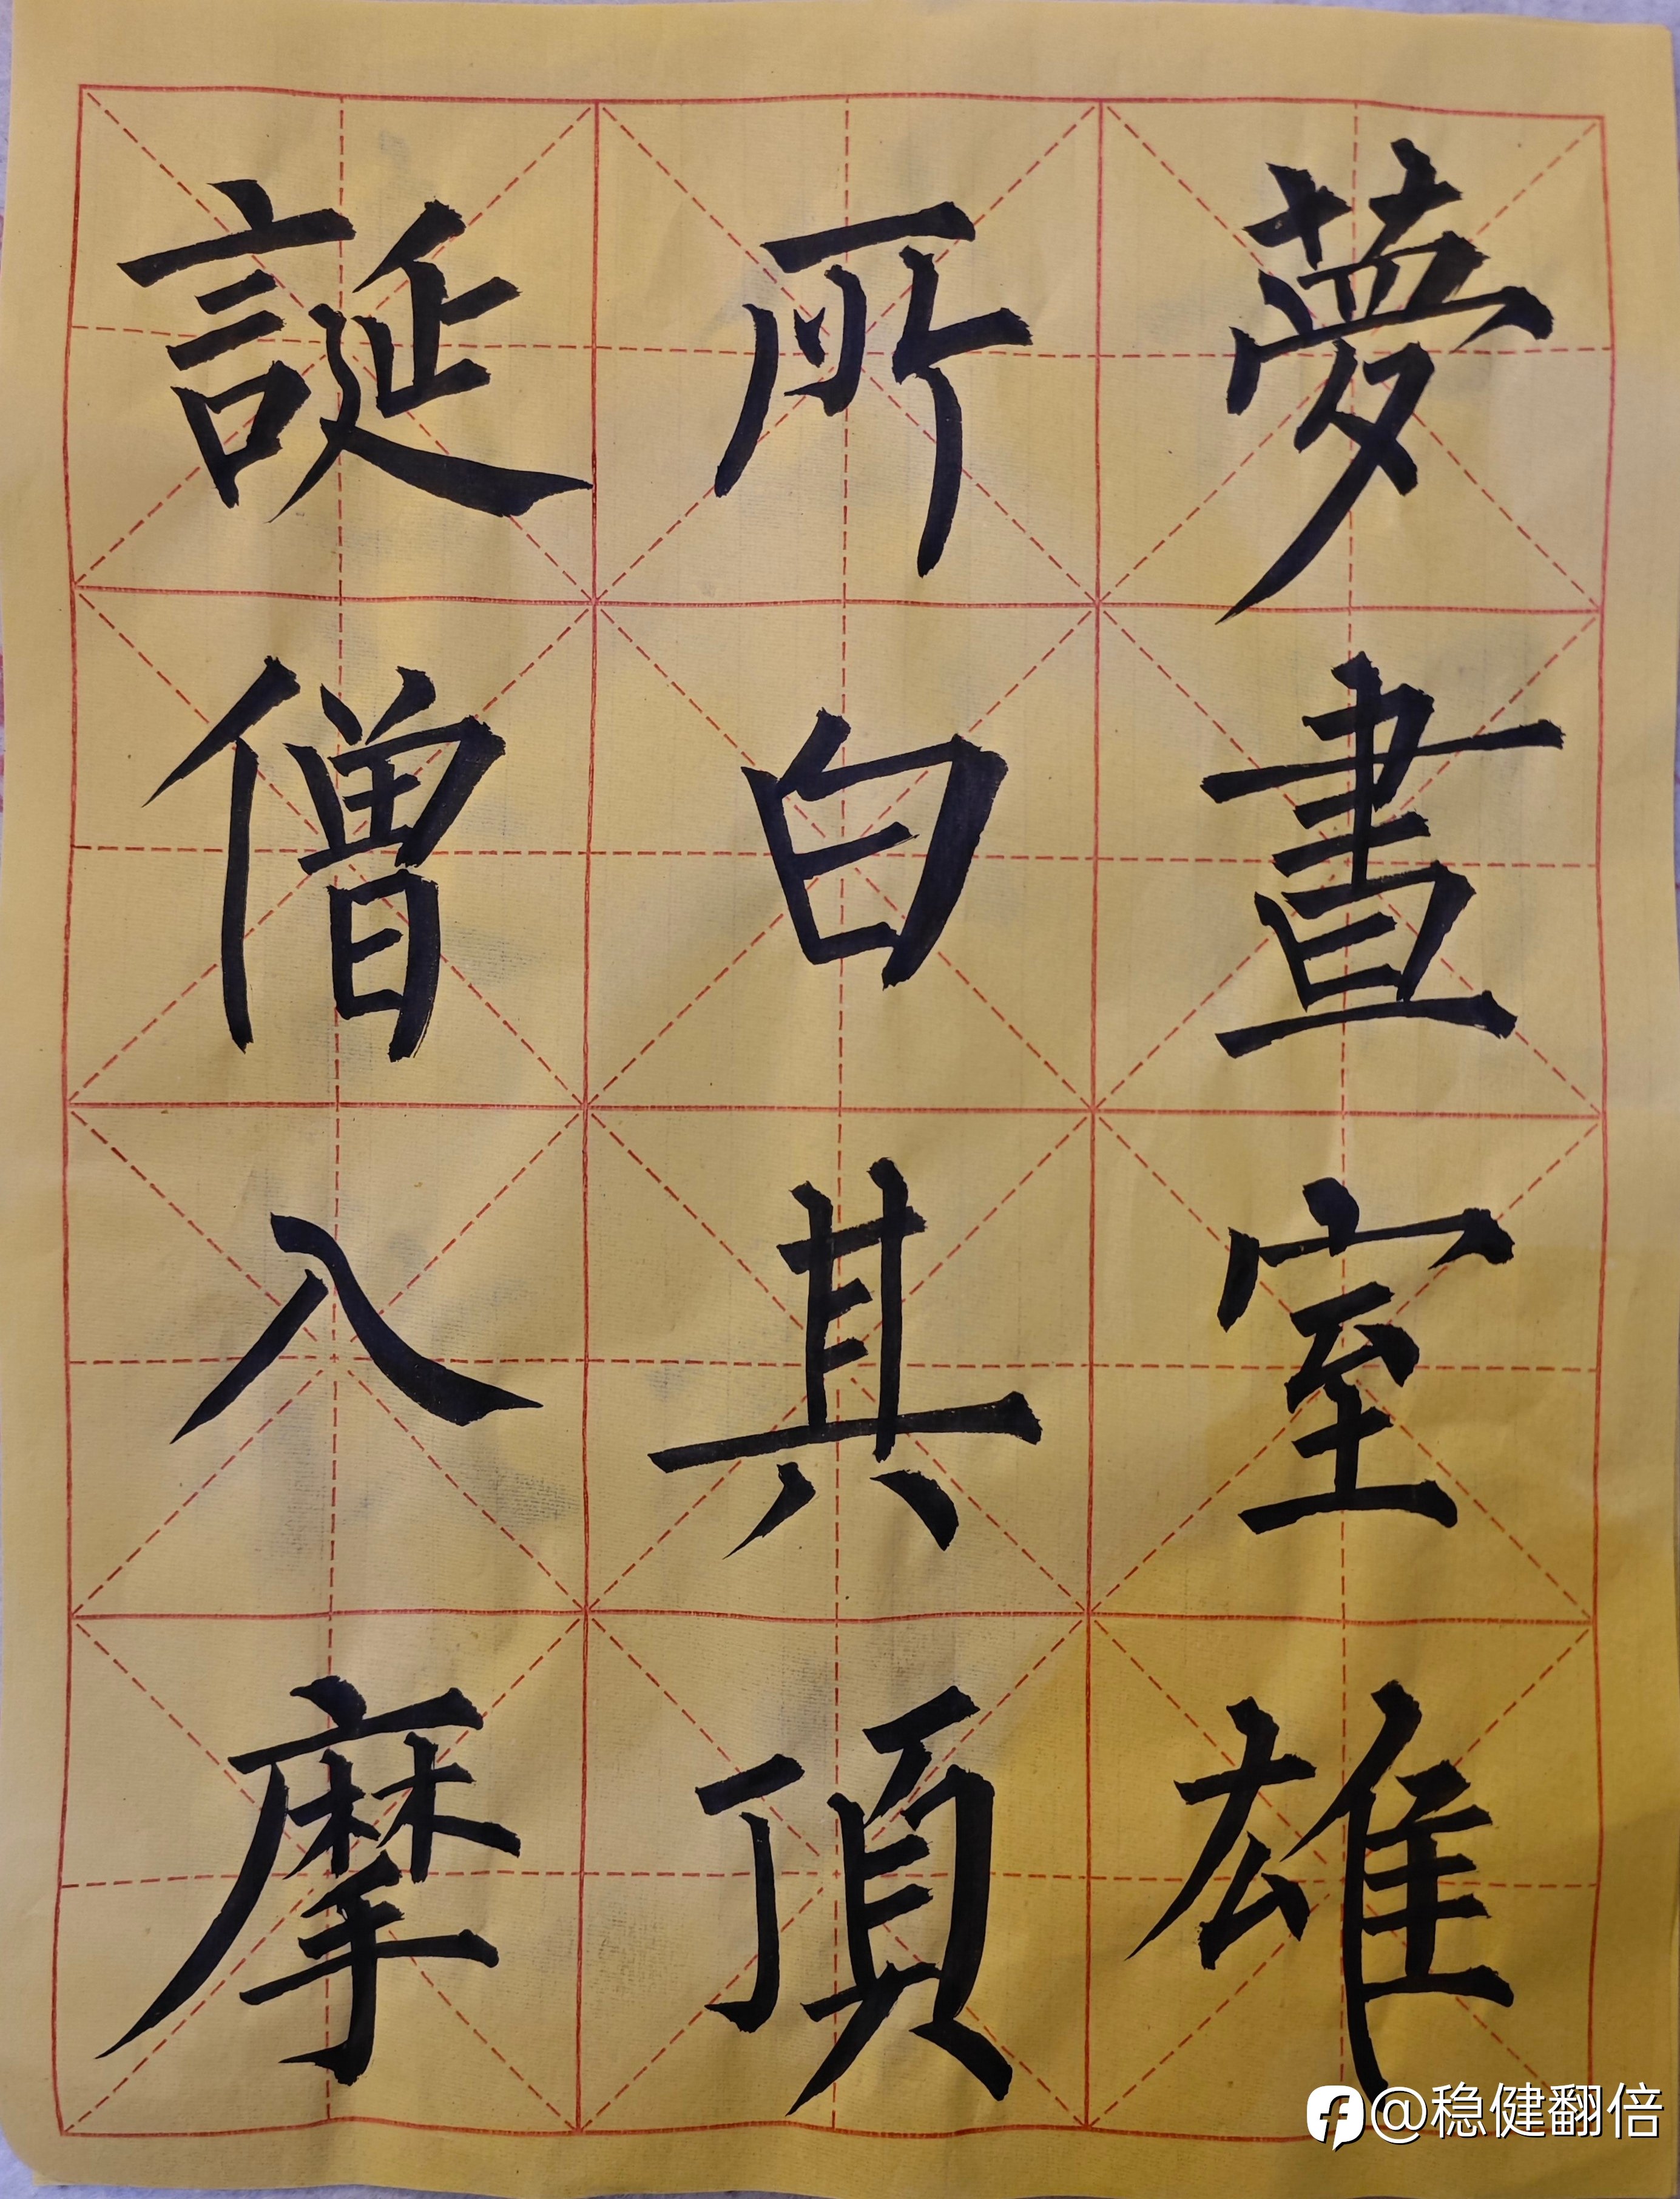 誕所夢
僧白晝
入其室
摩頂雄
@稳健翻倍